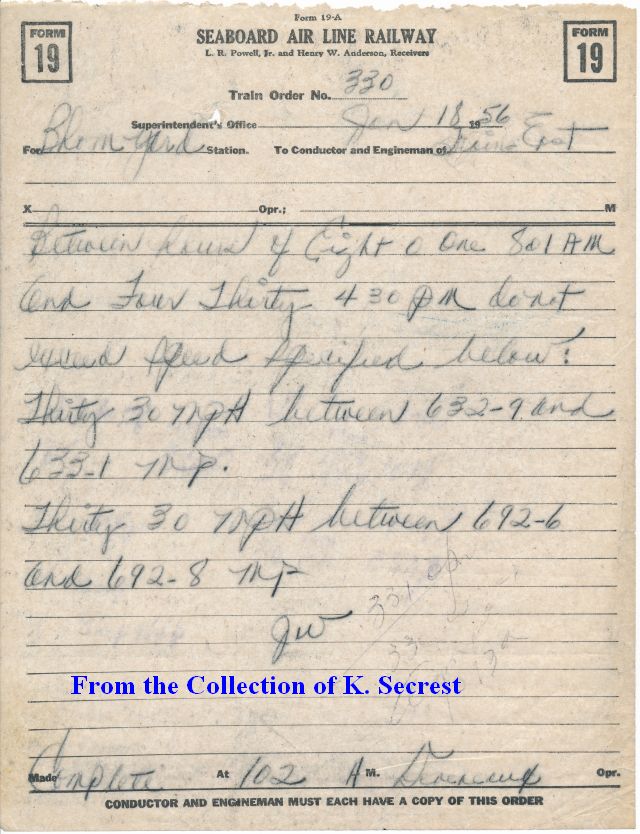 Form 19-A
FORM 19
SEABOARD AIR LINE RAILWAY
FORM 19
L. R. Powell, Jr. and Henry W. Anderson, Receivers
Train Order No. 330
Superintendent's Office Jan 18 1956
For Blom Yard Station. To Conductor and Engineman of Trains East
X Opr.; M
Between hours of Eight 0 One 801 AM
and Four Thirty 430 PM do not
exceed speed specified below:
Thirty 30 MPH between 632-9 and
633-1 MP.
Thirty 30 MPH between 692-6
and 692-8 MP
JW
331
From the Collection of K. Secrest
Made Complete At 102 A M. Opr.
CONDUCTOR AND ENGINEMAN MUST EACH HAVE A COPY OF THIS ORDER